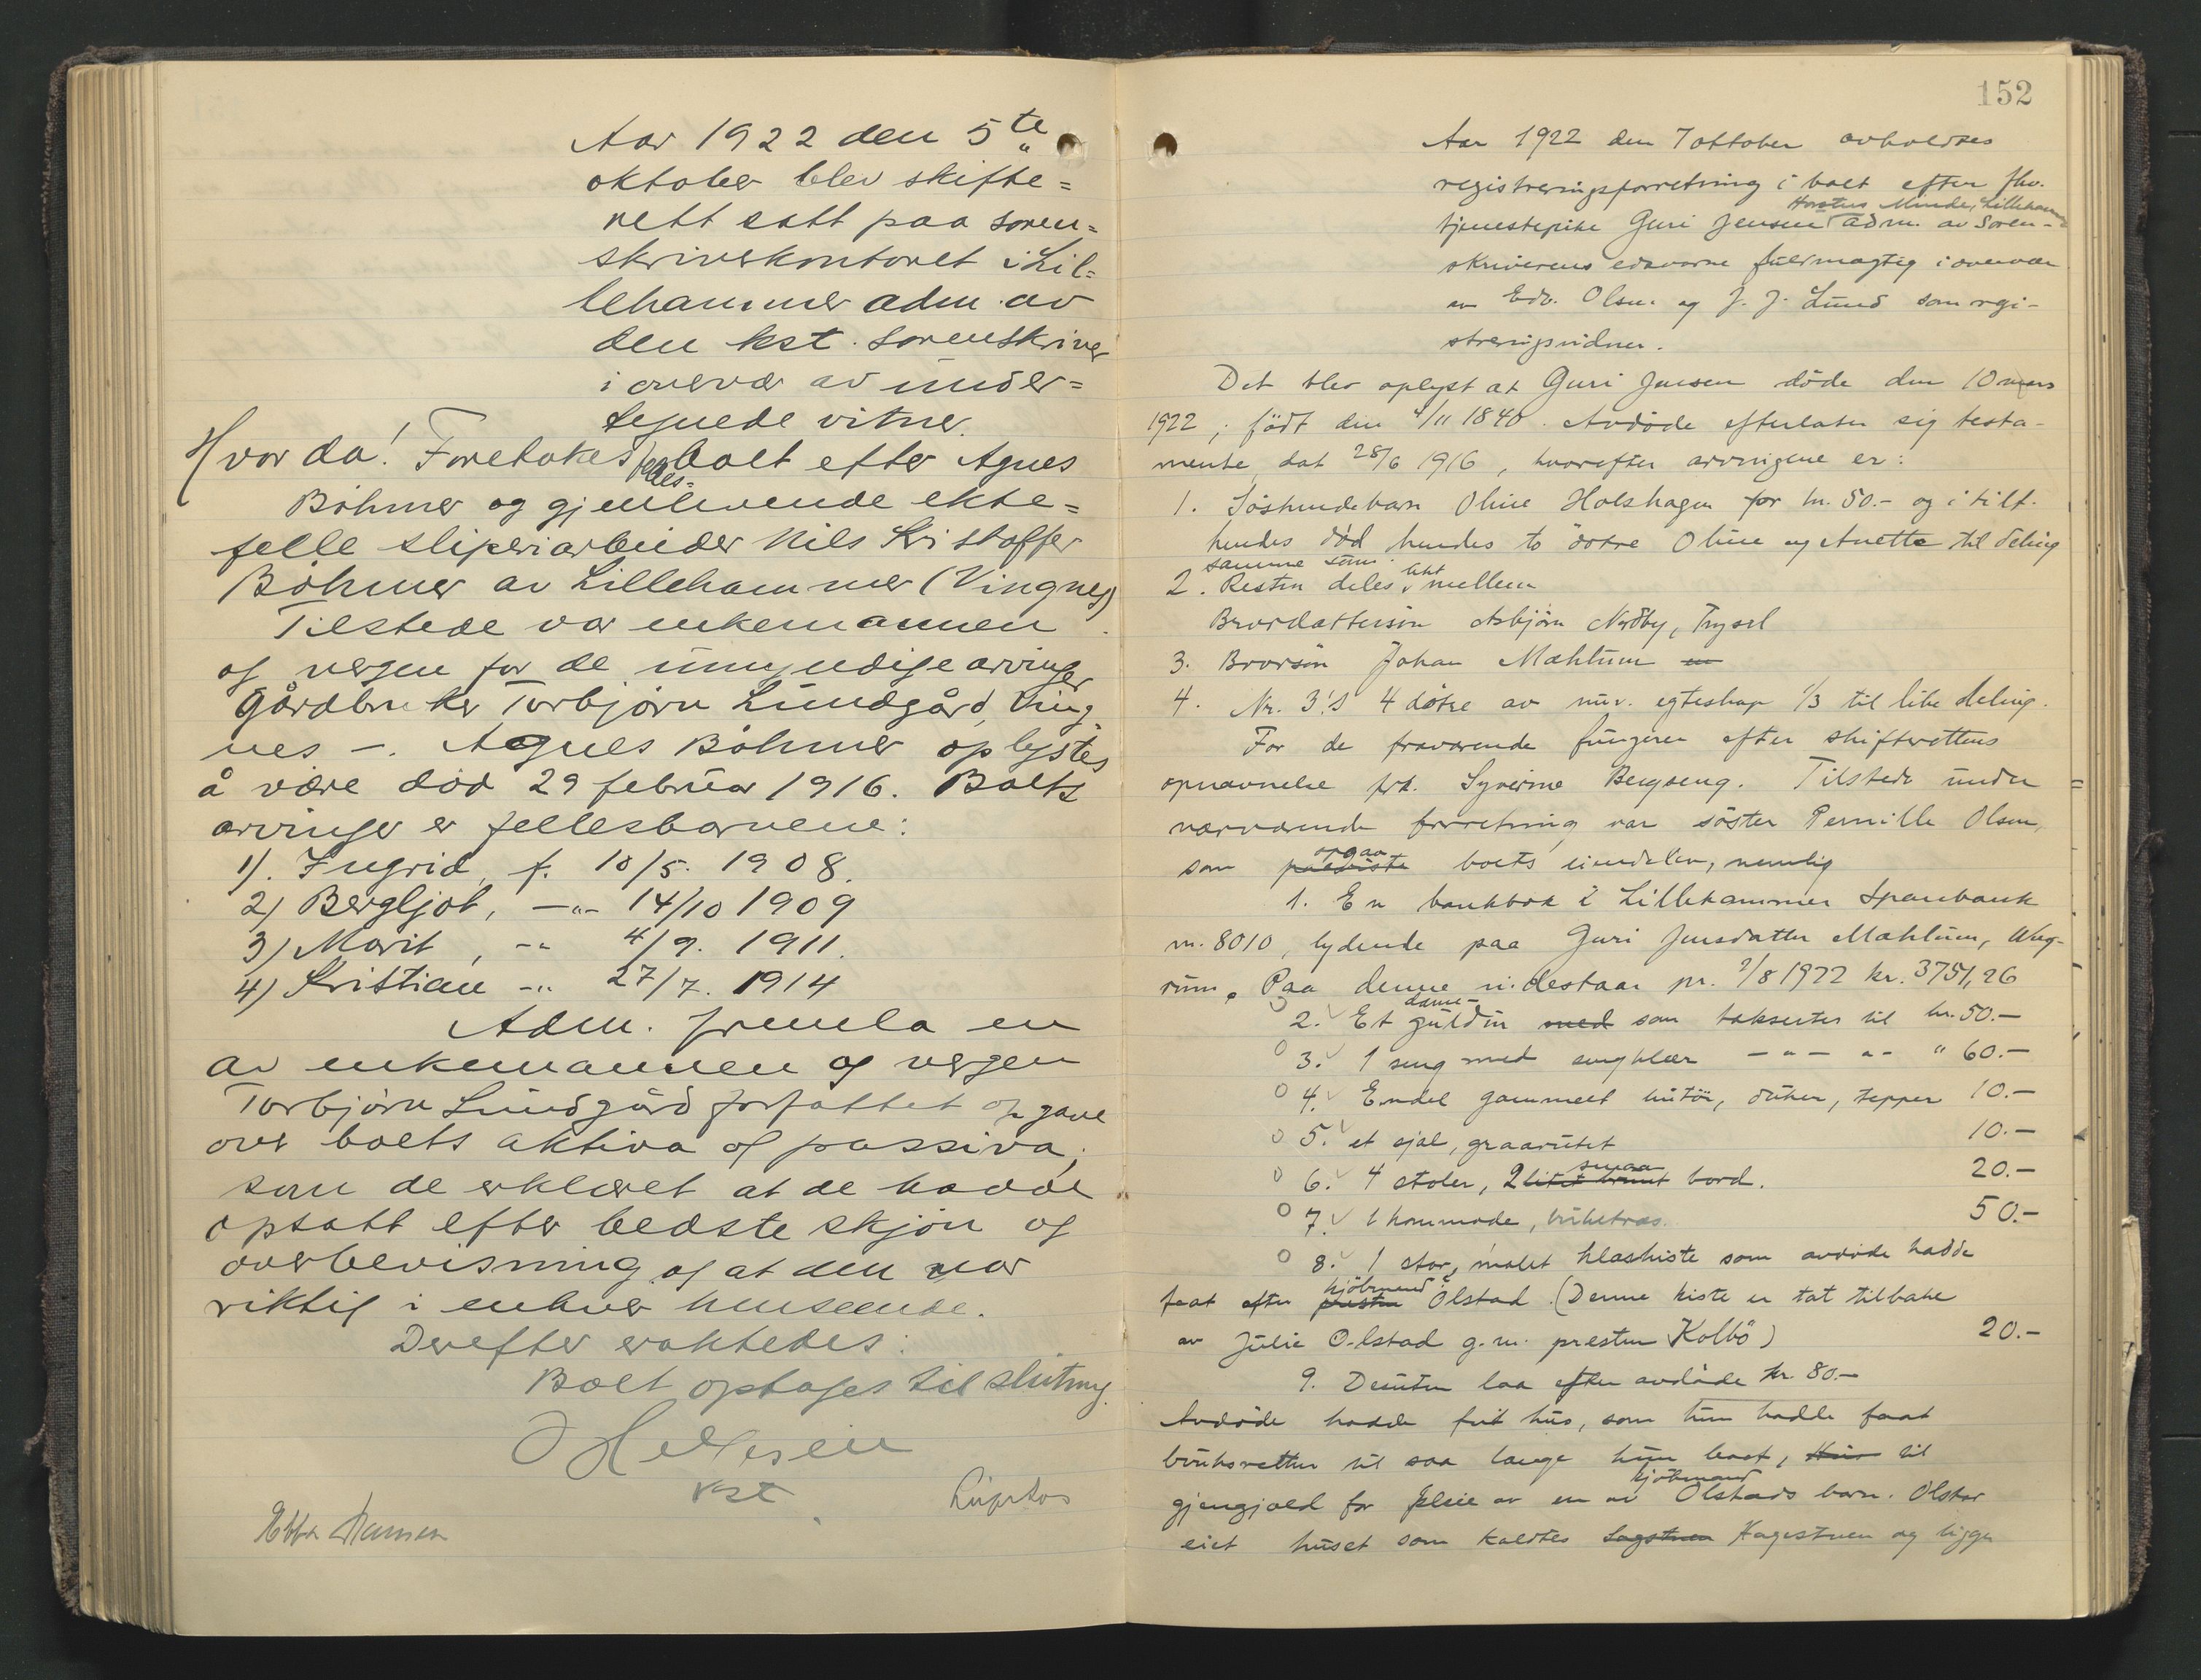 Aar 1922 den 5te
oktober blev skifte=
rett satt paa soren=
skriverkontoret i Lil=
lehammer adm. av
den kst. sorenskriver
i overvær av under=
tegnede vitner.
Hvorda! Foretokes felles=
boet efter Agnes
Böhmer og gjenlevende ekte=
felle sliperiarbeider Nils Kristoffer
Böhmer av Lillehammer (Vingnes)
Tilstede var enkemannen
og vergen for de umyndige arvinger
Gårdbruker Torbjörn Lundgård, Ving
nes –. Agnes Böhmer oplystes
å være död 29 februar 1916. Boets
arvinger er fellesbarnene:
1). Ingrid, f. 10/5. 1908.
2) Bergljot, –"– 14/10 1909
3) Marit, –" 4/9. 1911.
4) Kristian –" 27/7. 1914
Adm. fremla en
av enkemannen og vergen
Torbjörn Lundgård forfattet opgave
over boets aktiva og passiva,
som de erklæret at de hadde
opsatt efter bedste skjön og
overbevisning og at den var
riktig i enhver henseende.
Derefter eraktedes:
Boet optages til slutning.
kst.
Ebba Hansen
152
Aar 1922 den 7 oktober avholdtes
registreringsforretning i boet efter fhv.
Minde, Lillehammer
tjenestepike Guri Jensen adm. av Soren-
skriverens edsvorne fuldmægtig i overvær
av Edv. Olsen og J. J. Lund som regi-
streringsvidner.
Det blev oplyst at Guri Jensen döde den 10 mars
1922, födt den 4/11 1840. Avdöde efterlater sig testa-
mente dat 28/6 1916, hvorefter arvingene er:
1. Söskendebarn Oline Holshagen for kr. 50.- og i tilf.
hendes död hendes to dötre Oline og Anette til deling
samme sum.
2. Resten deles likt mellem
Brordattersön Asbjörn Nordby, Trysil
3. Brorsön Johan Mæhlum
4. Nr. 3's 4 dötre av nuv. egteskap 1/3 til like deling.
For de fraværende fungerer efter skifterettens
opnævnelse frk. Syverine Bergseng. Tilstede under
nærværende forretning var söster Pernille Olsen,
som opgav boets eiendeler, nemlig
1. En bankbok i Lillehammer Sparebank
nr. 8010, lydende paa Guri Jensdatter Mæhlum, Ving-
rum. Paa denne indestaar pr. 2/8 1922 kr. 3751,26
2. Et dame-guldur med som takseres til kr. 50.–
3. 1 seng med sengklær –"– "– " 60.–
4. Endel gammelt lintöi, duker, tepper 10.–
5. et sjal, graarutet 10.–
6. 4 stoler, 2 smaa bord. 20.–
7. 1 kommode, birketræs. 50.–
8. 1 stor, malet klæskiste som avdöde hadde
faat efter kjöbmand Olstad. (Denne kiste er tat tilbake
av Julie Olstad g. m. presten Kolbö) 20.–
9. Desuten laa efter avdöde kr. 80.–
Avdöde hadde frit hus, som hun hadde faat
bruksretten til saa lange hun levet, til
gjengjæld for pleie av en av kjöbmand Olstads barn. Olstad
eiet huset som kaldtes Hagestuen og ligger